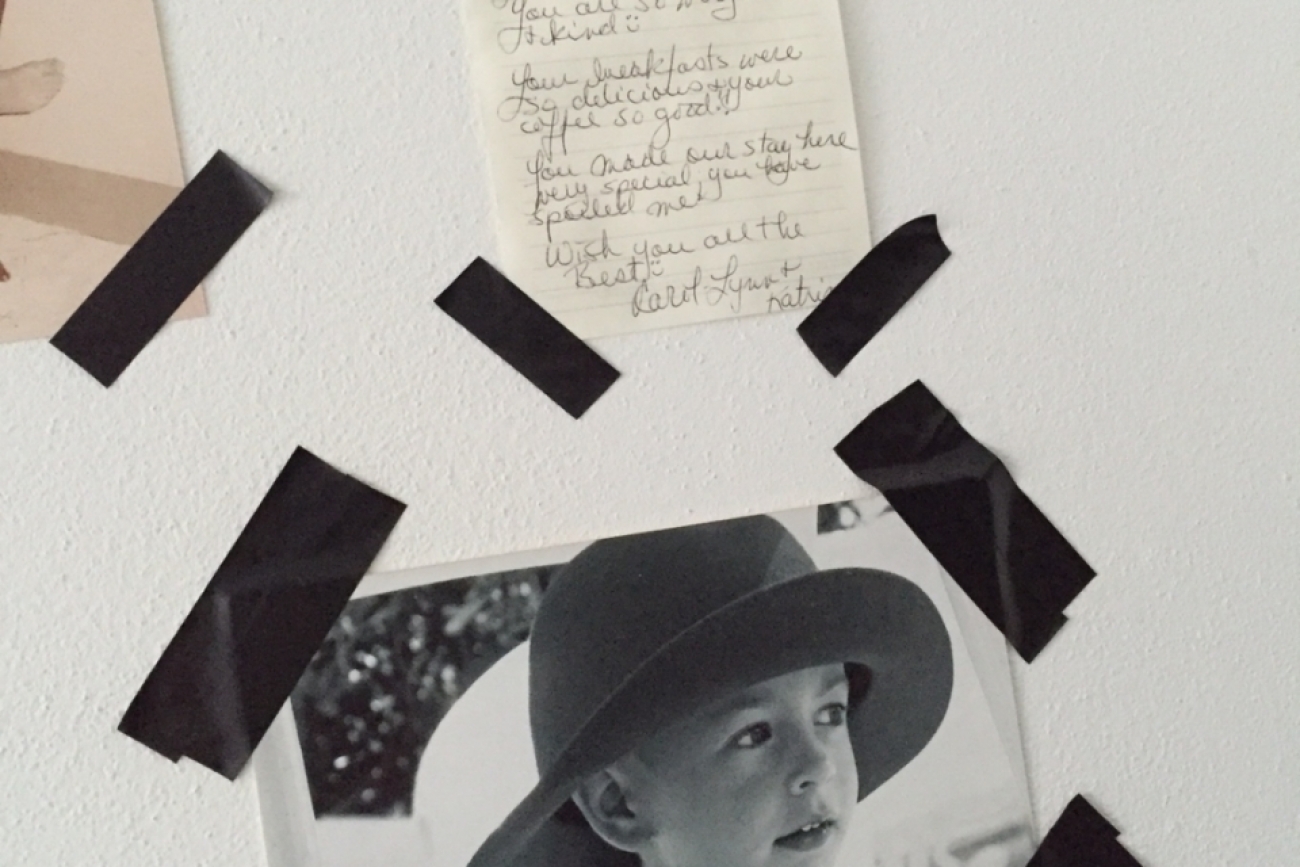 You are so very
& kind :)
Your breakfasts were
so delicious & your
coffee so good!!
You made our stay here
very special, you have
spoiled me!
Wish you all the
Best! :)
Carol Lynn +